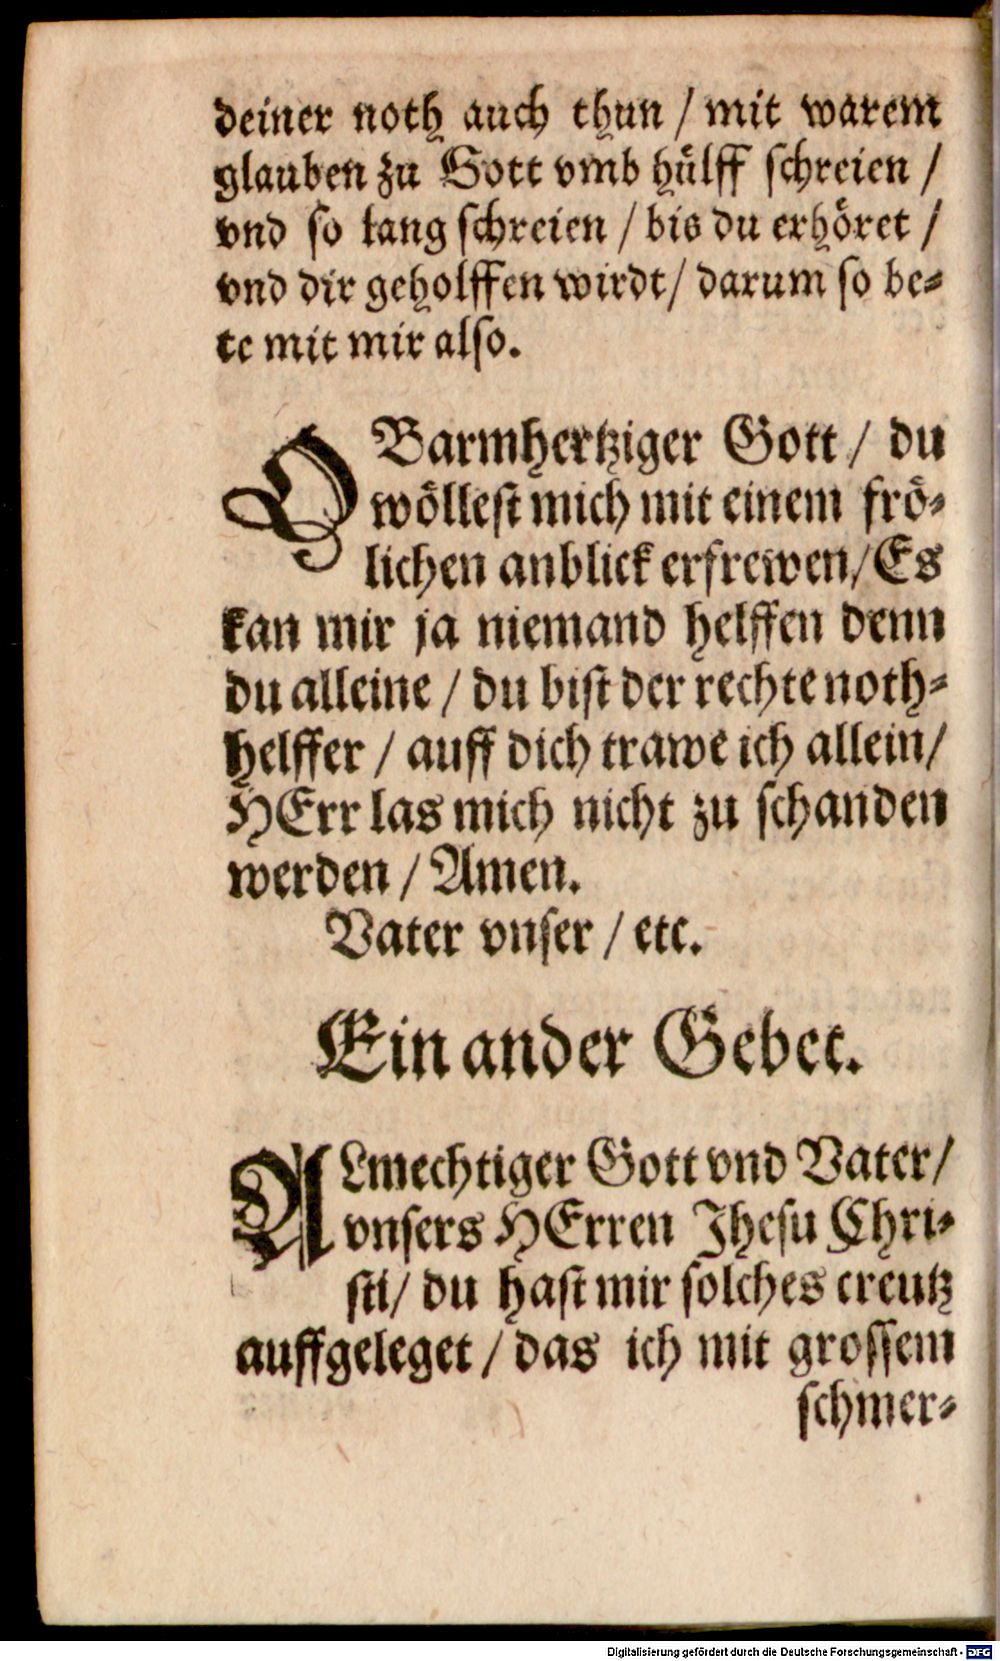 deiner noth auch thun / mit warem
glauben zu Gott vmb hülff schreien /
vnd so lang schreien / bis du erhöret /
vnd dir geholffen wirdt / darum so be-
te mit mir also.
O Barmhertziger Gott / du
wöllest mich mit einem frö-
lichen anblick erfrewen / Es
kan mir ja niemand helffen denn
du alleine / du bist der rechte noth-
helffer / auff dich trawe ich allein /
HErr las mich nicht zu schanden
werden / Amen.
Vater vnser / etc.
Ein ander Gebet.
ALmechtiger Gott vnd Vater /
vnsers HErren Jhesu Chri-
sti / du hast mir solches creutz
auffgeleget / das ich mit grossem
schmer-
Digitalisierung gefördert durch die Deutsche Forschungsgemeinschaft - DFG